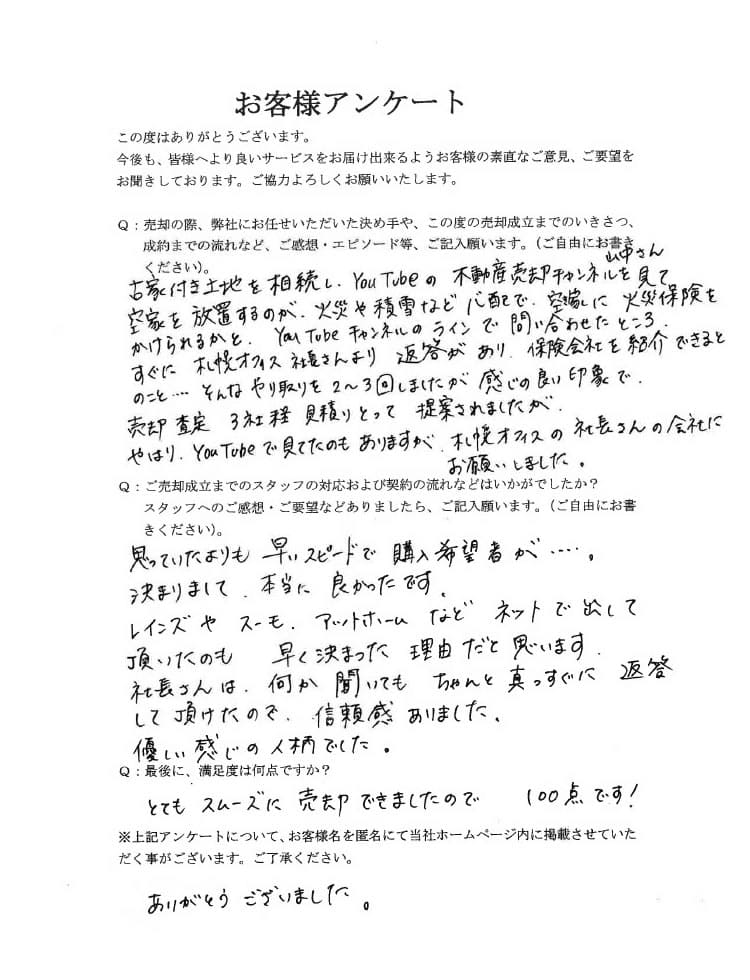 お客様アンケート
この度はありがとうございます。
今後も、皆様へより良いサービスをお届け出来るようお客様の素直なご意見、ご要望を
お聞きしております。ご協力よろしくお願いいたします。
Q：売却の際、弊社にお任せいただいた決め手や、この度の売却成立までのいきさつ、
成約までの流れなど、ご感想・エピソード等、ご記入願います。（ご自由にお書き
ください）。
山中さん
古家付き土地を相続し、YouTubeの不動産売却チャンネルを見て
空家を放置するのが、火災や積雪など心配で、空家に火災保険を
かけられるかと、YouTubeチャンネルのラインで問い合わせたところ、
すぐに札幌オフィス社長さんより返答があり、保険会社を紹介できると
のこと… そんなやり取りを2〜3回しましたが感じの良い印象で、
売却査定 3社程見積りとって提案されましたが、
やはり、YouTubeで見てたのもありますが、札幌オフィスの社長さんの会社に
お願いしました。
Q：ご売却成立までのスタッフの対応および契約の流れなどはいかがでしたか？
スタッフへのご感想・ご要望などありましたら、ご記入願います。（ご自由にお書
きください）。
思っていたよりも早いスピードで購入希望者が…。
決まりまして、本当に良かったです。
レインズやスーモ、アットホームなどネットで出して
頂いたのも早く決まった理由だと思います。
社長さんは、何か聞いてもちゃんと真っすぐに返答
して頂けたので、信頼感ありました。
優しい感じの人柄でした。
Q：最後に、満足度は何点ですか？
とてもスムーズに売却できましたので 100点です！
※上記アンケートについて、お客様名を匿名にて当社ホームページ内に掲載させていた
だく事がございます。ご了承ください。
ありがとうございました。